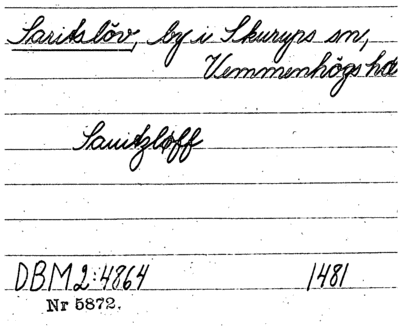 Saritslöv, by i Skurups sn,
Vemmenhögs hd
Sauitzløff
DBM 2:4864 1481
Nr 5872.